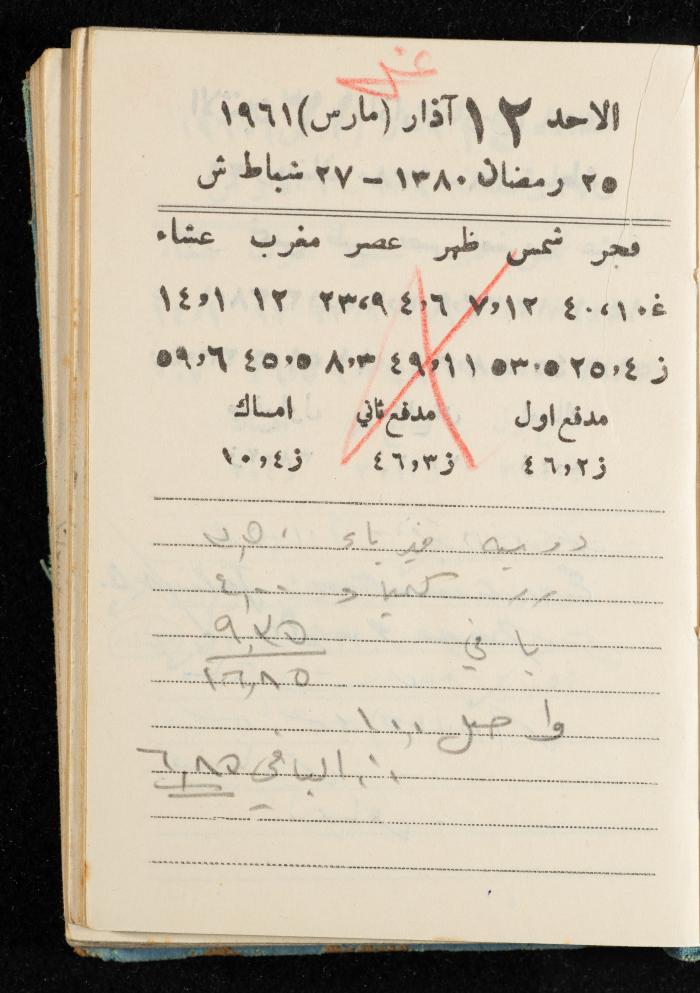 الاحد ١٢ آذار (مارس) ١٩٦١
٢٥ رمضان ١٣٨٠ – ٢٧ شباط ش
فجر شمس ظهر عصر مغرب عشاء
غ ١٠،٤٠ ١٢،٧ ٦،٤ ٩،٢٣ ١٢ ١،١٤
ز ٤،٢٥ ٥،٥٣ ١١،٤٩ ٣،٨ ٥،٤٥ ٦،٥٩
مدفع اول مدفع ثاني امساك
ز ٢،٤٦ ز ٣،٤٦ ز ٤،١٠
دوسيه فيزياء
كيمياء ٤,٠٠
باقي ٩,٣٥
١٦,٨٥
واصل ١٠,٠
الباقي ٦,٨٥